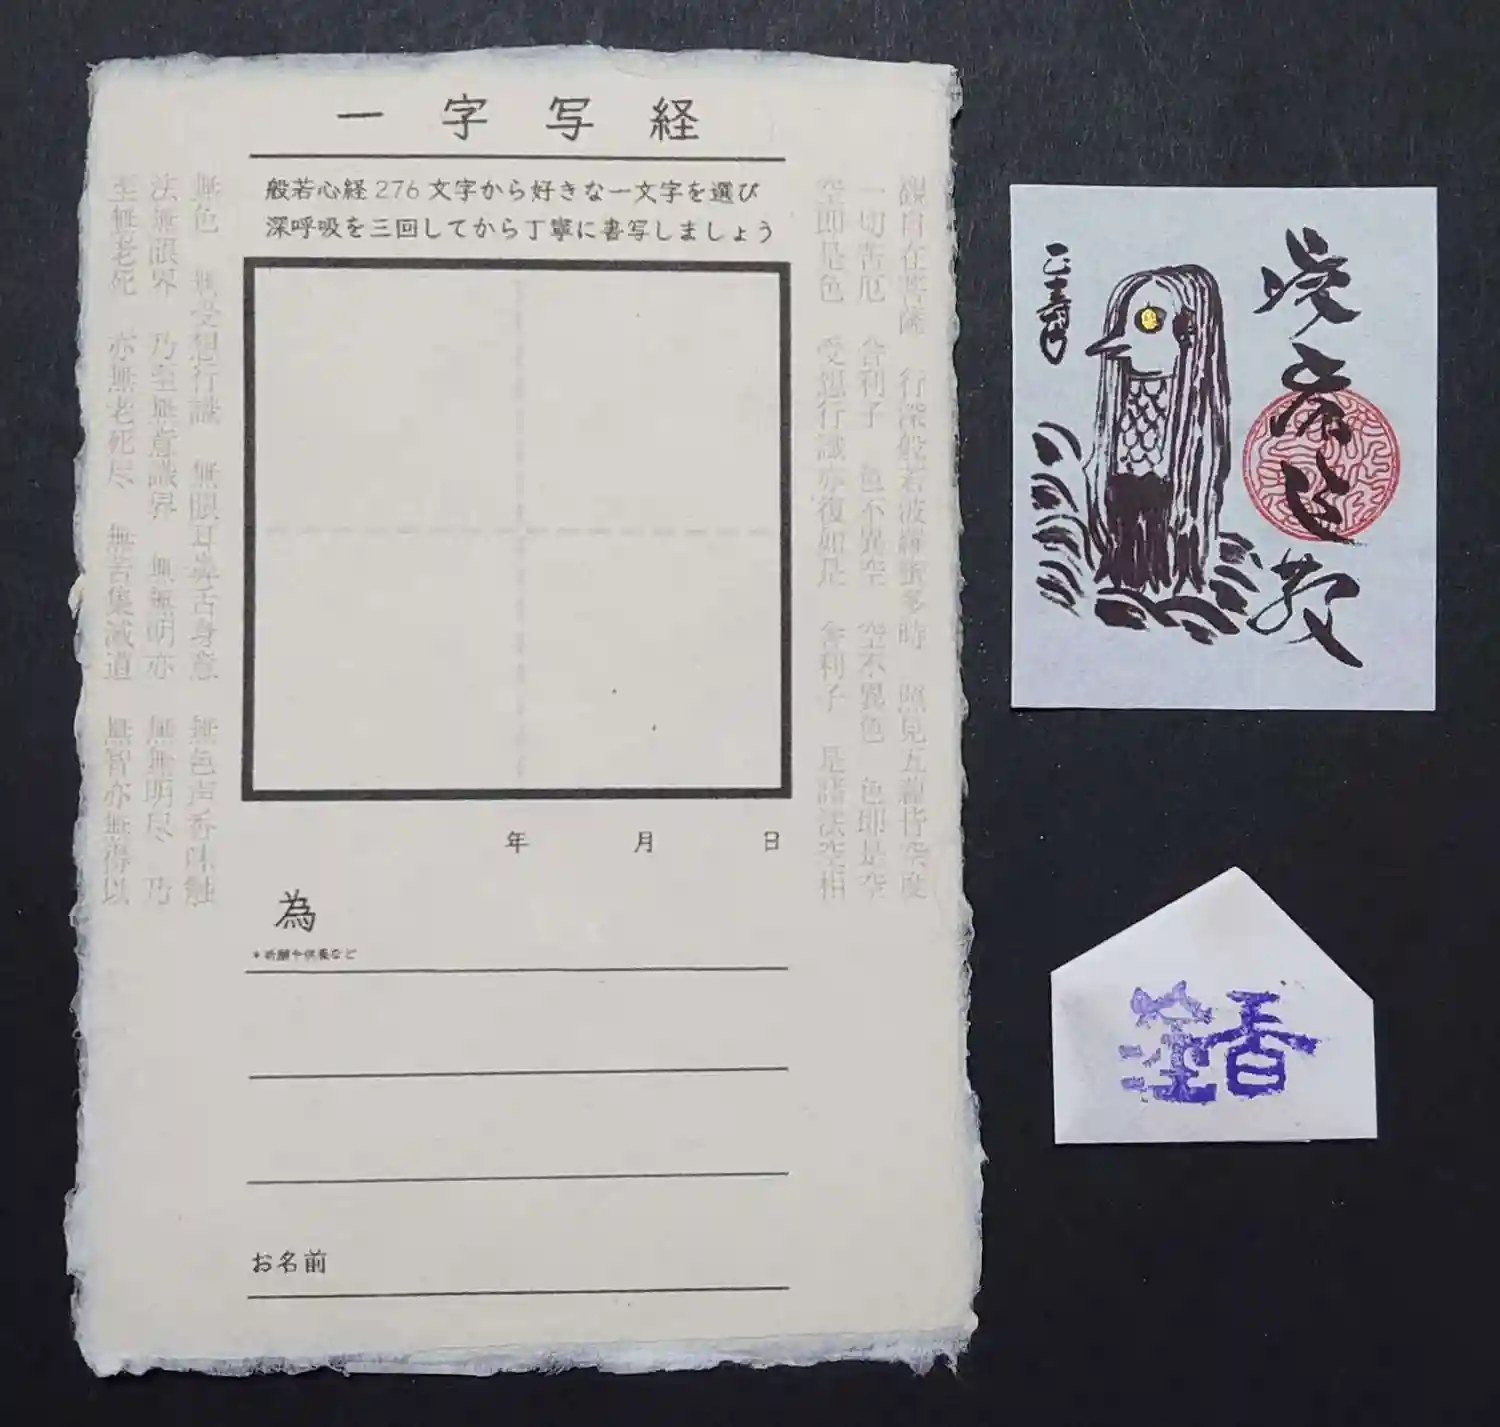 一字写経
般若心経276文字から好きな一文字を選び
深呼吸を三回してから丁寧に書写しましょう
観自在菩薩 行深般若波羅蜜多時 照見五蘊皆空度
一切苦厄 舎利子 色不異空 空不異色 色即是空
空即是色 受想行識亦復如是 舎利子 是諸法空相
無色 無受想行識 無眼耳鼻舌身意 無色声香味触
法無眼界 乃至無意識界 無無明亦 無無明尽 乃
至無老死 亦無老死尽 無苦集滅道 無智亦無得以
年 月 日
為
*祈願や供養など
お名前
塗香